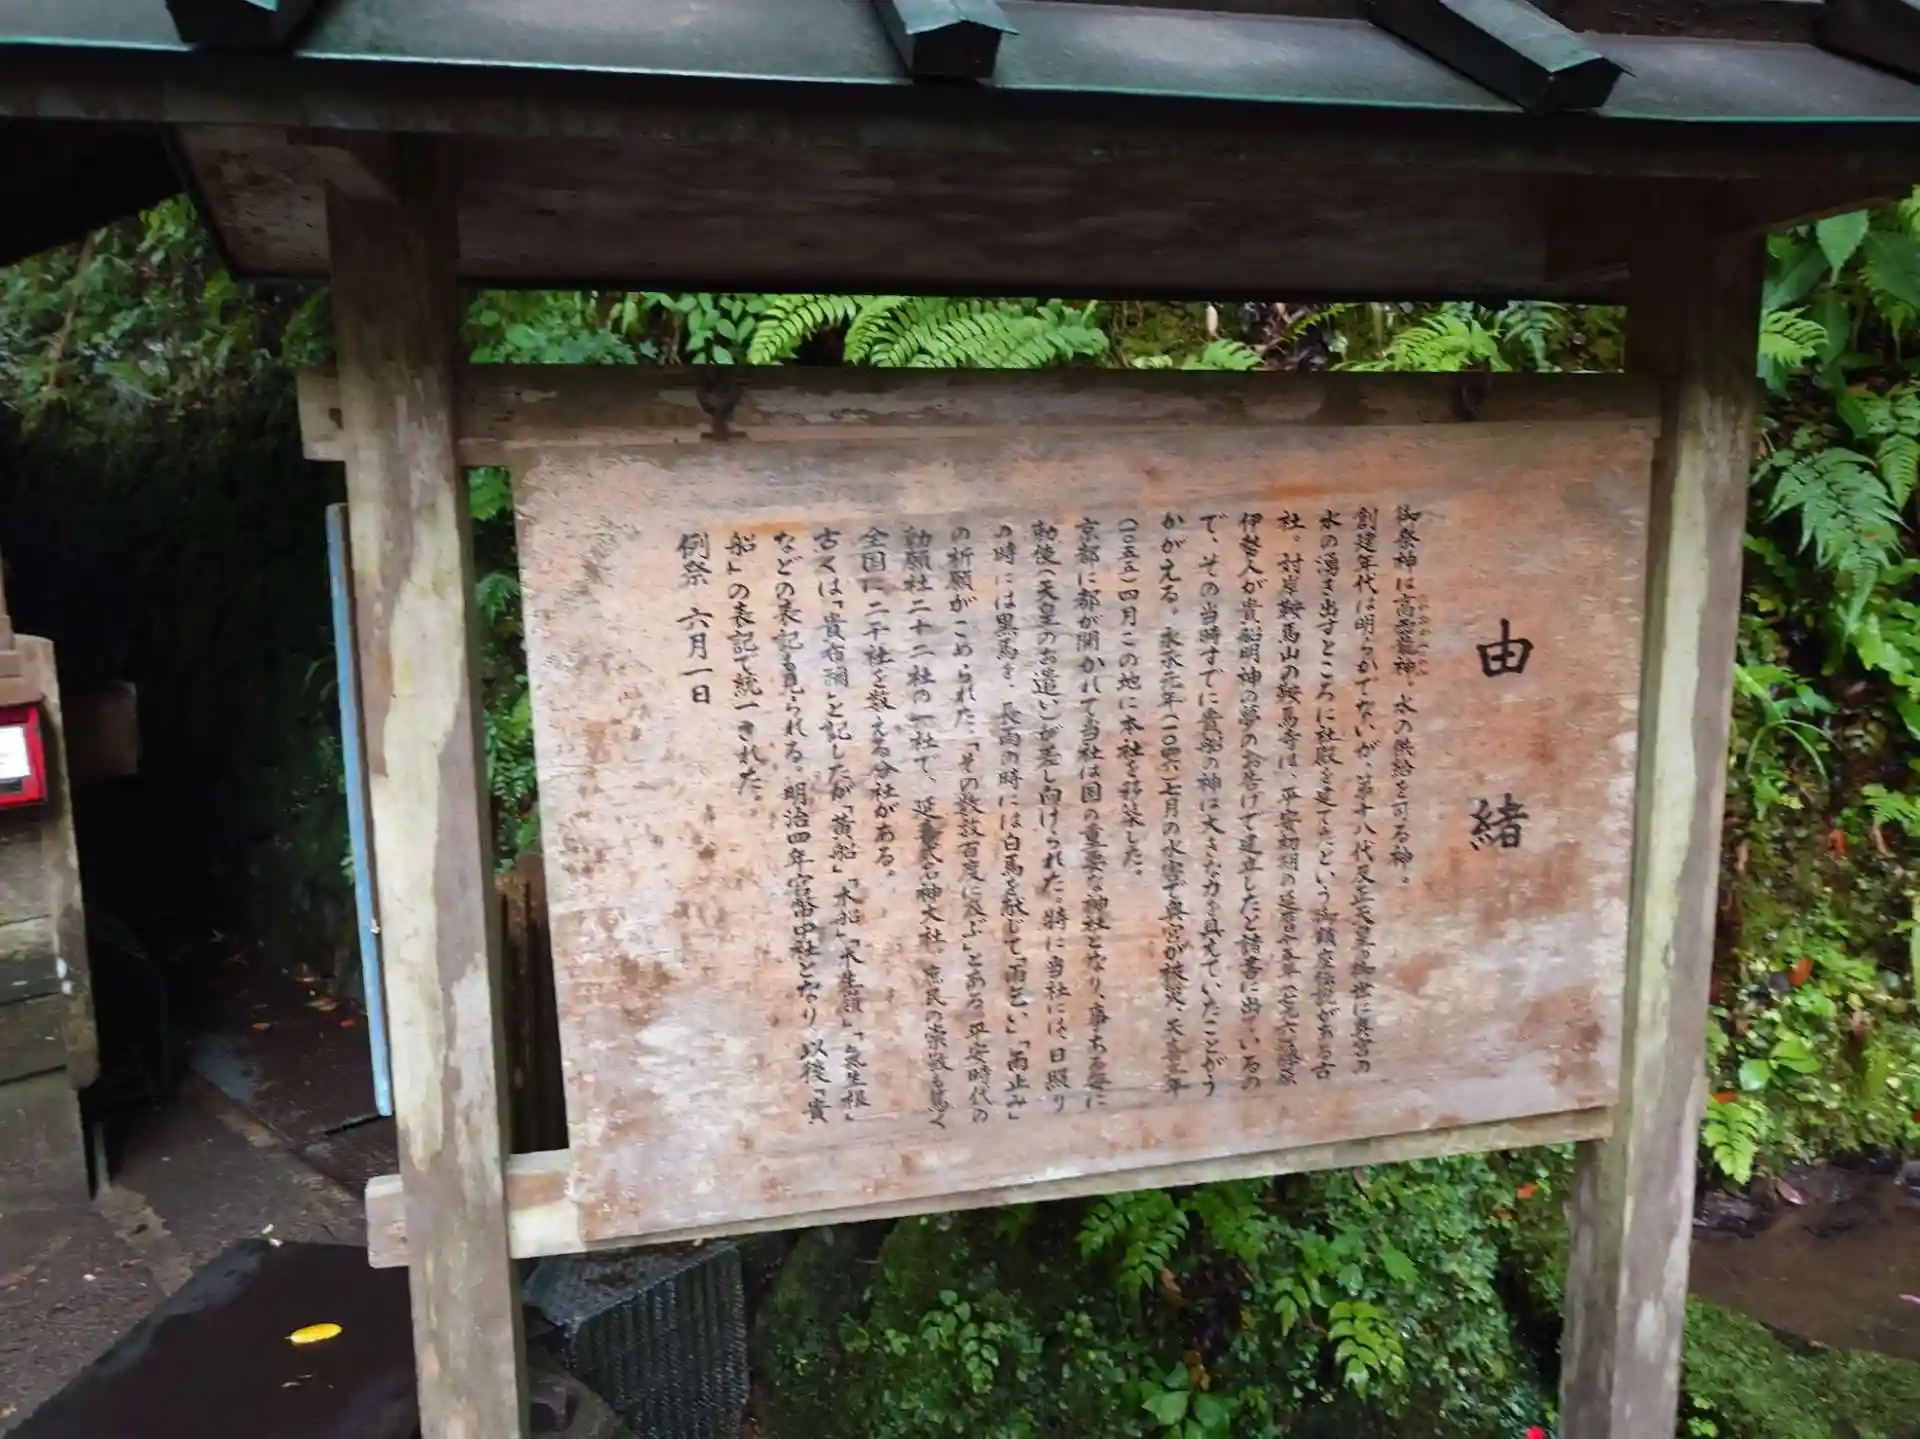 由緒
御祭神は高龗神。水の供給を司る神。
創建年代は明らかでないが、第十八代反正天皇の御世に奥宮の
水の湧き出すところに社殿を建てたという御鎮座伝説がある古
社。対岸鞍馬山の鞍馬寺は、平安初期の延暦十五年(七九六)藤原
伊勢人が貴船明神の夢のお告げで建立したと諸書に出ているの
で、その当時すでに貴船の神は大きな力を具えていたことがう
かがえる。永承元年(一〇四六)七月の水害で奥宮が被災、天喜三年
(一〇五五)四月この地に本社を移築した。
京都に都が開かれて当社は国の重要な神社となり、事ある毎に
勅使(天皇のお遣い)が差し向けられた。特に当社には、日照り
の時には黒馬を、長雨の時には白馬を献じて「雨乞い」「雨止み」
の祈願がこめられた。「その数数百度に及ぶ」とある。平安時代の
勅願社二十二社の一社で、延喜式名神大社。庶民の崇敬も篤く
全国に二千社を数える分社がある。
古くは「貴布禰」と記したが「黄船」「木船」「木生嶺」「気生根」
などの表記も見られる。明治四年官幣中社となり、以後「貴
船」の表記で統一された。
例祭 六月一日